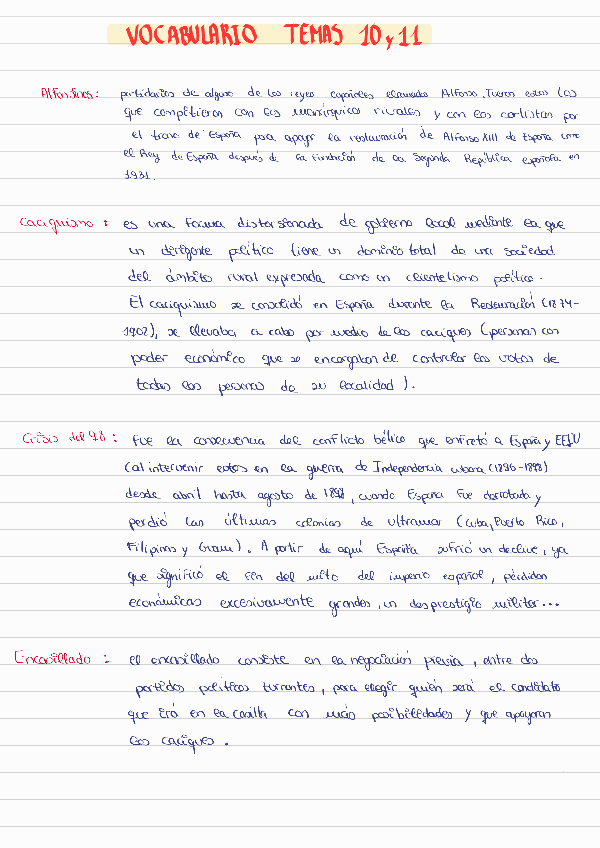 VOCABULARIO TEMAS 10 y 11
Alfonsinos: partidarios de alguno de los reyes españoles llamados Alfonso. Fueron estos los
que compitieron con los monárquicos rivales y con los carlistas por
el trono de España para apoyar la restauración de Alfonso XIII de España como
el Rey de España después de la fundación de la Segunda República española en
1931.
Caciquismo: es una forma distorsionada de gobierno local mediante la que
un dirigente político tiene un dominio total de una sociedad
del ámbito rural expresada como un clientelismo político.
El caciquismo se consolidó en España durante la Restauración (1874-
1902), se llevaba a cabo por medio de los caciques (personas con
poder económico que se encargaban de controlar los votos de
todas las personas de su localidad).
Crisis del 98: fue la consecuencia del conflicto bélico que enfrentó a España y EEUU
(al intervenir estos en la guerra de Independencia cubana (1896-1898)
desde abril hasta agosto de 1898, cuando España fue derrotada y
perdió las últimas colonias de ultramar (Cuba, Puerto Rico,
Filipinas y Guam). A partir de aquí España sufrió un declive, ya
que significó el fin del mito del imperio español, pérdidas
económicas excesivamente grandes, un desprestigio militar...
Encasillado: el encasillado consiste en la negociación previa, entre dos
partidos políticos turnantes, para elegir quién será el candidato
que irá en la casilla con más posibilidades y que apoyaran
los caciques.